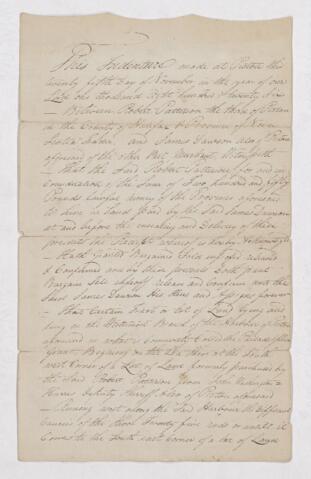 This Indenture made at Pictou the
twenty fifth day of November in the year of our
Lord one thousand Eight hundred & twenty Six
Between Robert Patterson the third of Pictou
in the County of Halifax & Province of Nova
Scotia and James Dawson also of Pictou
aforesaid of the other Part Merchant Witnesseth
That the Said Robert Patterson for and in
Consideration of the Sum of Two hundred and fifty
Pounds Lawful money of the Province aforesaid
to him in hand paid by the Said James Dawson
at and before the ensealing and Delivery of these
presents the Receipt whereof is hereby Acknowledged
Hath Granted Bargained Sold released
& Confirmed and by these presents Doth Grant
Bargain Sell release and Confirm unto the
Said James Dawson His Heirs and Assigns forever
That Certain Tract or Lot of Land lying and
being on the Harbour of Pictou
aforesaid in what is commonly Called the
Grant Beginning on the Shore at the South
west Corner of a Lot of Land formerly purchased by
the Said Robert Patterson from John Washington
Harris Deputy Sheriff Also of Pictou aforesaid
Running west along the Said Harbour the different
Courses of the Shore Twenty five rods or until it
Comes to the South east corner of a Lot of Land